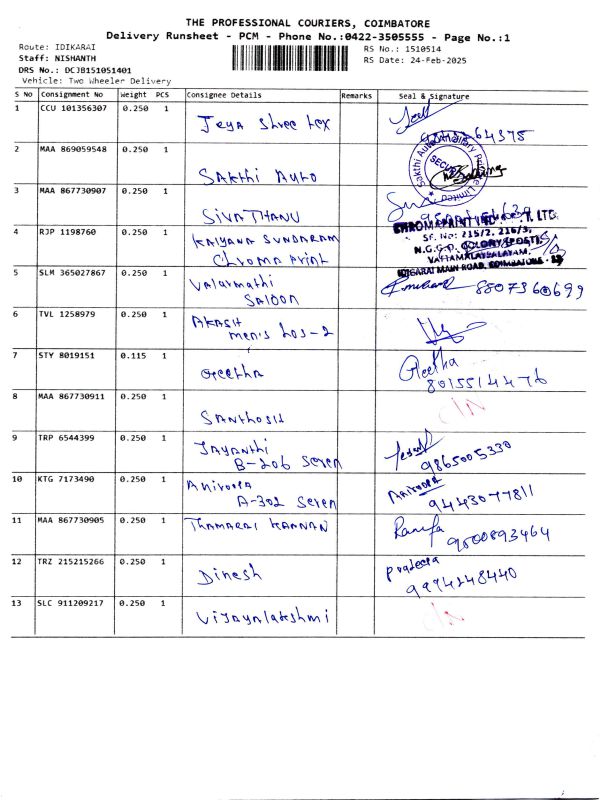 THE PROFESSIONAL COURIERS, COIMBATORE
Delivery Runsheet - PCM - Phone No.:0422-3505555 - Page No.:1
Route: IDIKARAI
RS No.: 1510514
Staff: NISHANTH
RS Date: 24-Feb-2025
DRS No.: DCJB151051401
Vehicle: Two Wheeler Delivery
S No Consignment No Weight PCS Consignee Details Remarks Seal & Signature
1 CCU 101356307 0.250 1
Jeya Shree tex
2 MAA 869059548 0.250 1
Sakthi Auto
Sakthi Auto Ancillary Private Limited
SECURITY
3 MAA 867730907 0.250 1
SIVATHANU
4 RJP 1198760 0.250 1
KALYANA SUNDARAM
Chroma Print
CHROMAPRINT IND
T. LTD.
SF. No: 215/2, 216/3,
N.G.G.O. COLONY (POST),
VATTAMALAIPALAYAM,
IDIGARAI MAIN ROAD, COIMBATORE
5 SLM 365027867 0.250 1
Valarmathi
Saloon
8807360699
6 TVL 1258979 0.250 1
AKASH
men's hos-2
7 STY 8019151 0.115 1
Geetha
Geetha
8015514476
8 MAA 867730911 0.250 1
Santhosh
9 TRP 6544399 0.250 1
Jayanthi
B-206 Seren
9865005330
10 KTG 7173490 0.250 1
Aniroopa
A-302 Seren
Aniroopa
9443077811
11 MAA 867730905 0.250 1
THAMARAI KANNAN
9500893464
12 TRZ 215215266 0.250 1
Dinesh
Pradeepa
9994248440
13 SLC 911209217 0.250 1
Vijayalakshmi